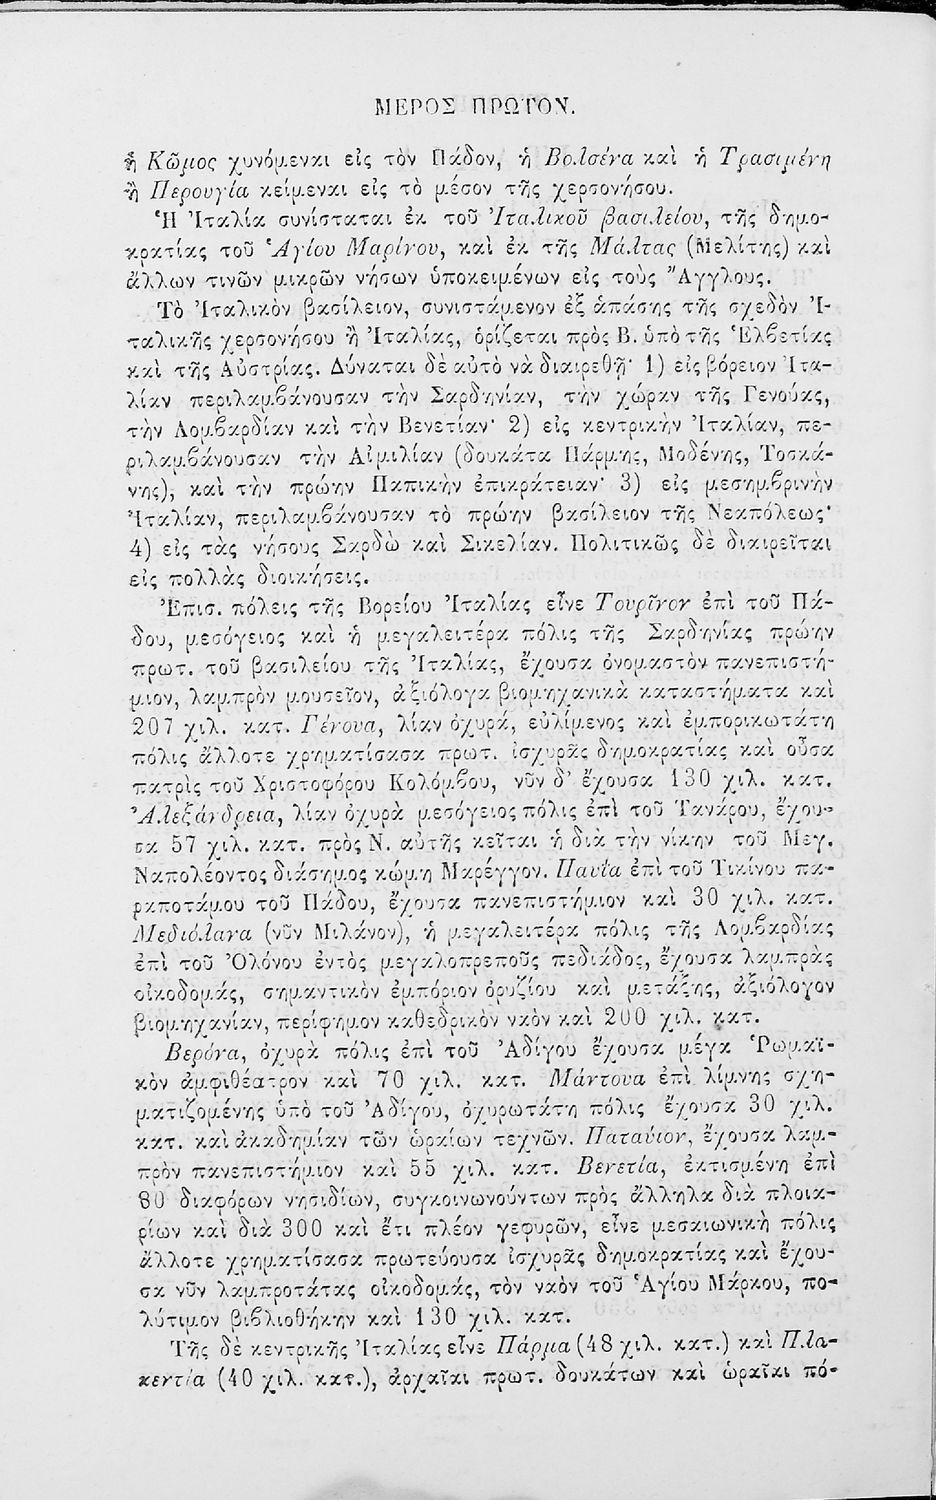 ΜΕΡΟΣ ΠΡΩΤΟΝ.
ἢ Κῶμος χυνόμεναι εἰς τὸν Πάδον, ἡ Βολσένα καὶ ἡ Τρασιμένη
ἢ Περουγία κείμεναι εἰς τὸ μέσον τῆς χερσονήσου.
Ἡ Ἰταλία συνίσταται ἐκ τοῦ Ἰταλικοῦ βασιλείου, τῆς δημο-
κρατίας τοῦ Ἁγίου Μαρίνου, καὶ ἐκ τῆς Μάλτας (Μελίτης) καὶ
ἄλλων τινῶν μικρῶν νήσων ὑποκειμένων εἰς τοὺς Ἄγγλους.
Τὸ Ἰταλικὸν βασίλειον, συνιστάμενον ἐξ ἁπάσης τῆς σχεδὸν Ἰ-
ταλικῆς χερσονήσου ἢ Ἰταλίας, ὁρίζεται πρὸς Β. ὑπὸ τῆς Ἑλβετίας
καὶ τῆς Αὐστρίας. Δύναται δὲ αὐτὸ νὰ διαιρεθῇ· 1) εἰς βόρειον Ἰτα-
λίαν περιλαμβάνουσαν τὴν Σαρδηνίαν, τὴν χώραν τῆς Γενούας,
τὴν Λομβαρδίαν καὶ τὴν Βενετίαν· 2) εἰς κεντρικὴν Ἰταλίαν, πε-
ριλαμβάνουσαν τὴν Αἰμιλίαν (δουκάτα Πάρμης, Μοδένης, Τοσκά-
νης), καὶ τὴν πρώην Παπικὴν ἐπικράτειαν· 3) εἰς μεσημβρινὴν
Ἰταλίαν, περιλαμβάνουσαν τὸ πρώην βασίλειον τῆς Νεαπόλεως·
4) εἰς τὰς νήσους Σαρδὼ καὶ Σικελίαν. Πολιτικῶς δὲ διαιρεῖται
εἰς πολλὰς διοικήσεις.
Ἐπισ. πόλεις τῆς Βορείου Ἰταλίας εἶνε Τουρῖνον ἐπὶ τοῦ Πά-
δου, μεσόγειος καὶ ἡ μεγαλειτέρα πόλις τῆς Σαρδηνίας πρώην
πρωτ. τοῦ βασιλείου τῆς Ἰταλίας, ἔχουσα ὀνομαστὸν πανεπιστή-
μιον, λαμπρὸν μουσεῖον, ἀξιόλογα βιομηχανικὰ καταστήματα καὶ
207 χιλ. κατ. Γένουα, λίαν ὀχυρά, εὐλίμενος καὶ ἐμπορικωτάτη
πόλις ἄλλοτε χρηματίσασα πρωτ. ἰσχυρᾶς δημοκρατίας καὶ οὖσα
πατρὶς τοῦ Χριστοφόρου Κολόμβου, νῦν δ' ἔχουσα 130 χιλ. κατ.
Ἀλεξάνδρεια, λίαν ὀχυρὰ μεσόγειος πόλις ἐπὶ τοῦ Τανάρου, ἔχου-
σα 57 χιλ. κατ. πρὸς Ν. αὐτῆς κεῖται ἡ διὰ τὴν νίκην τοῦ Μεγ.
Ναπολέοντος διάσημος κώμη Μαρέγγον. Παυΐα ἐπὶ τοῦ Τικίνου πα-
ραποτάμου τοῦ Πάδου, ἔχουσα πανεπιστήμιον καὶ 30 χιλ. κατ.
Μεδιόλανα (νῦν Μιλάνον), ἡ μεγαλειτέρα πόλις τῆς Λομβαρδίας
ἐπὶ τοῦ Ὀλόνου ἐντὸς μεγαλοπρεποῦς πεδιάδος, ἔχουσα λαμπρὰς
οἰκοδομάς, σημαντικὸν ἐμπόριον ὀρυζίου καὶ μετάξης, ἀξιόλογον
βιομηχανίαν, περίφημον καθεδρικὸν ναὸν καὶ 200 χιλ. κατ.
Βερόνα, ὀχυρὰ πόλις ἐπὶ τοῦ Ἀδίγου ἔχουσα μέγα Ῥωμαϊ-
κὸν ἀμφιθέατρον καὶ 70 χιλ. κατ. Μάντουα ἐπὶ λίμνης σχη-
ματιζομένης ὑπὸ τοῦ Ἀδίγου, ὀχυρωτάτη πόλις ἔχουσα 30 χιλ.
κατ. καὶ ἀκαδημίαν τῶν ὡραίων τεχνῶν. Παταύιον, ἔχουσα λαμ-
πρὸν πανεπιστήμιον καὶ 55 χιλ. κατ. Βενετία, ἐκτισμένη ἐπὶ
80 διαφόρων νησιδίων, συγκοινωνούντων πρὸς ἄλληλα διὰ πλοια-
ρίων καὶ διὰ 300 καὶ ἔτι πλέον γεφυρῶν, εἶνε μεσαιωνικὴ πόλις
ἄλλοτε χρηματίσασα πρωτεύουσα ἰσχυρᾶς δημοκρατίας καὶ ἔχου-
σα νῦν λαμπροτάτας οἰκοδομάς, τὸν ναὸν τοῦ Ἁγίου Μάρκου, πο-
λύτιμον βιβλιοθήκην καὶ 130 χιλ. κατ.
Τῆς δὲ κεντρικῆς Ἰταλίας εἶνε Πάρμα (48 χιλ. κατ.) καὶ Πλα-
κεντία (40 χιλ. κατ.), ἀρχαῖαι πρωτ. δουκάτων καὶ ὡραῖαι πό-